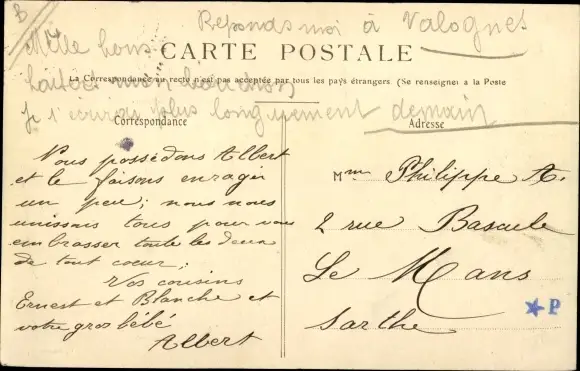 Reponds moi à Valognes
Mille bons
CARTE POSTALE
La Correspondance au recto n'est pas acceptée par tous les pays étrangers. (Se renseigner à la Poste
je t'écrirai plus longuement demain
Correspondance
Adresse
Nous possédons Albert
et le faisons enrager
un peu; nous nous
unissons tous pour vous
embrasser toute les deux
de tout coeur;
Vos cousins
Ernest et Blanche et
votre gros bébé
Albert
Mme Philippe A.
2 rue Bascule
Le Mans
Sarthe
★P